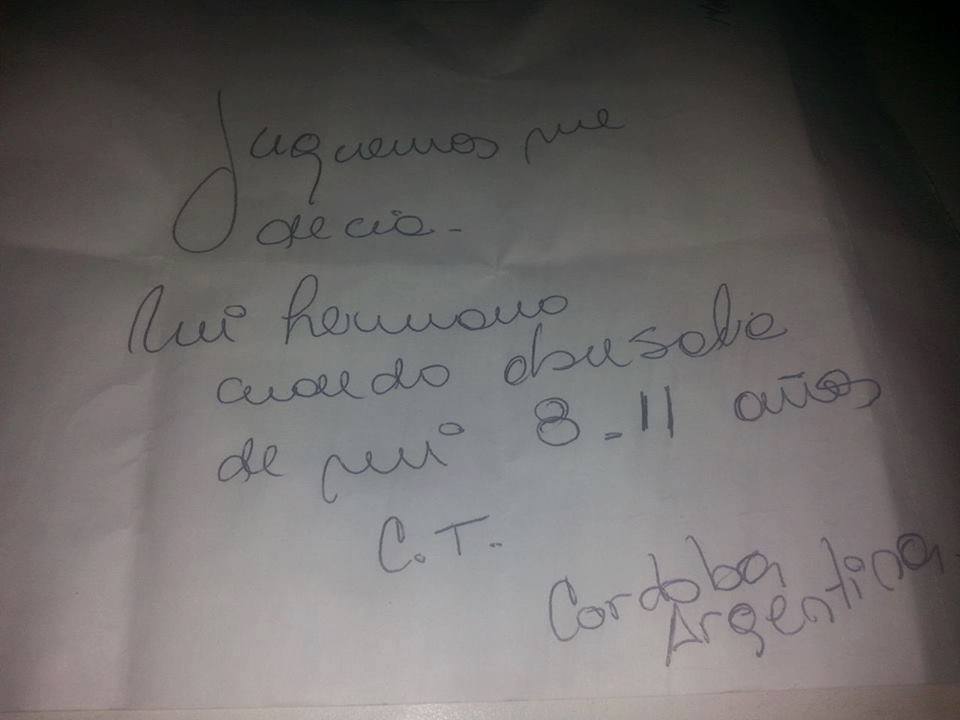 Juguemos me
decia -
Mi hermano
cuando abusaba
de mi 8-11 años
C.T.
Cordoba
Argentina